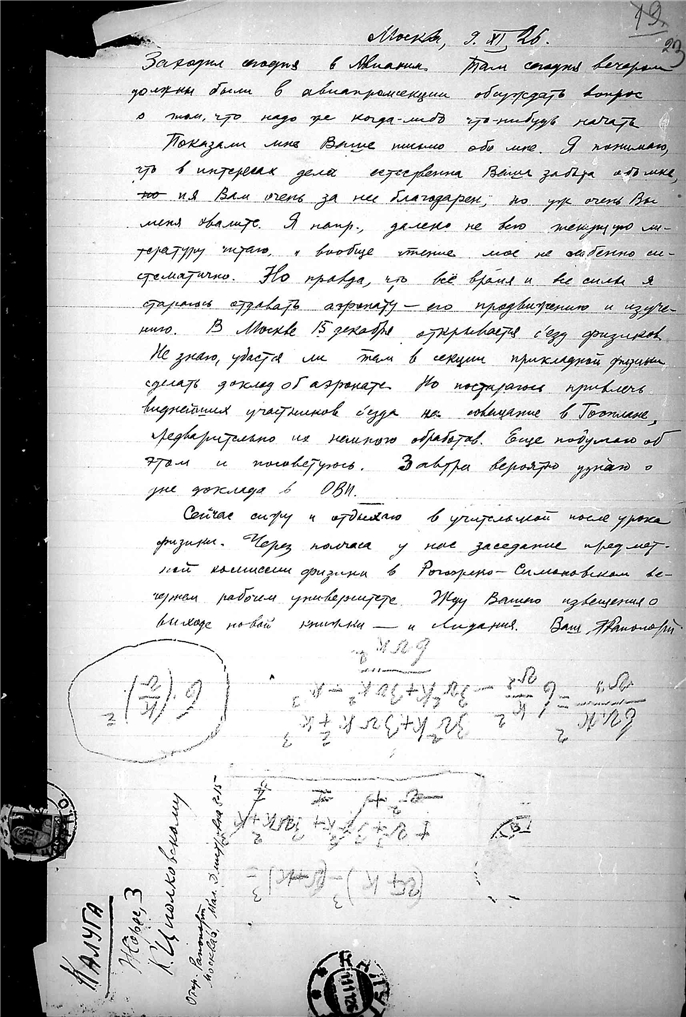 19.
23
Москва, 9. XI, 26.
Заходил сегодня в Авиахим. Там сегодня вечером
должны были в авиапромсекции обсуждать вопрос
о том, что надо же когда-либо что-нибудь начать
Показали мне Ваше письмо обо мне. Я понимаю,
что в интересах дела естественна Ваша забота обо мне,
и я Вам очень за нее благодарен; но уж очень Вы
меня хвалите. Я напр., далеко не всю текущую ли-
тературу читаю, и вообще чтение мое не особенно си-
стематично. Но правда, что всё время и все силы я
стараюсь отдавать аэронату — его продвижению и изуче-
нию. В Москве 15 декабря открывается съезд физиков
Не знаю, удастся ли там в секции прикладной физики
сделать доклад об аэронате. Но постараюсь привлечь
виднейших участников съезда на совещание в Госплане,
предварительно их немного обработав. Еще подумаю об
этом и посоветуюсь. Завтра вероятно узнаю о
дне доклада в ОВИ.
Сейчас сижу и отдыхаю в учительской после урока
физики. Через полчаса у нас заседание предмет-
ной комиссии физики в Рогожско-Симоновском ве-
чернем рабочем университете. Жду Вашего извещения о
выходе новой книжки — и свидания. Ваш, ЯРапопорт
КАЛУГА
Жорес, 3
К Циолковскому
Отпр. Рапопорт
Москва, Мал. 8-15
КАЛУГА